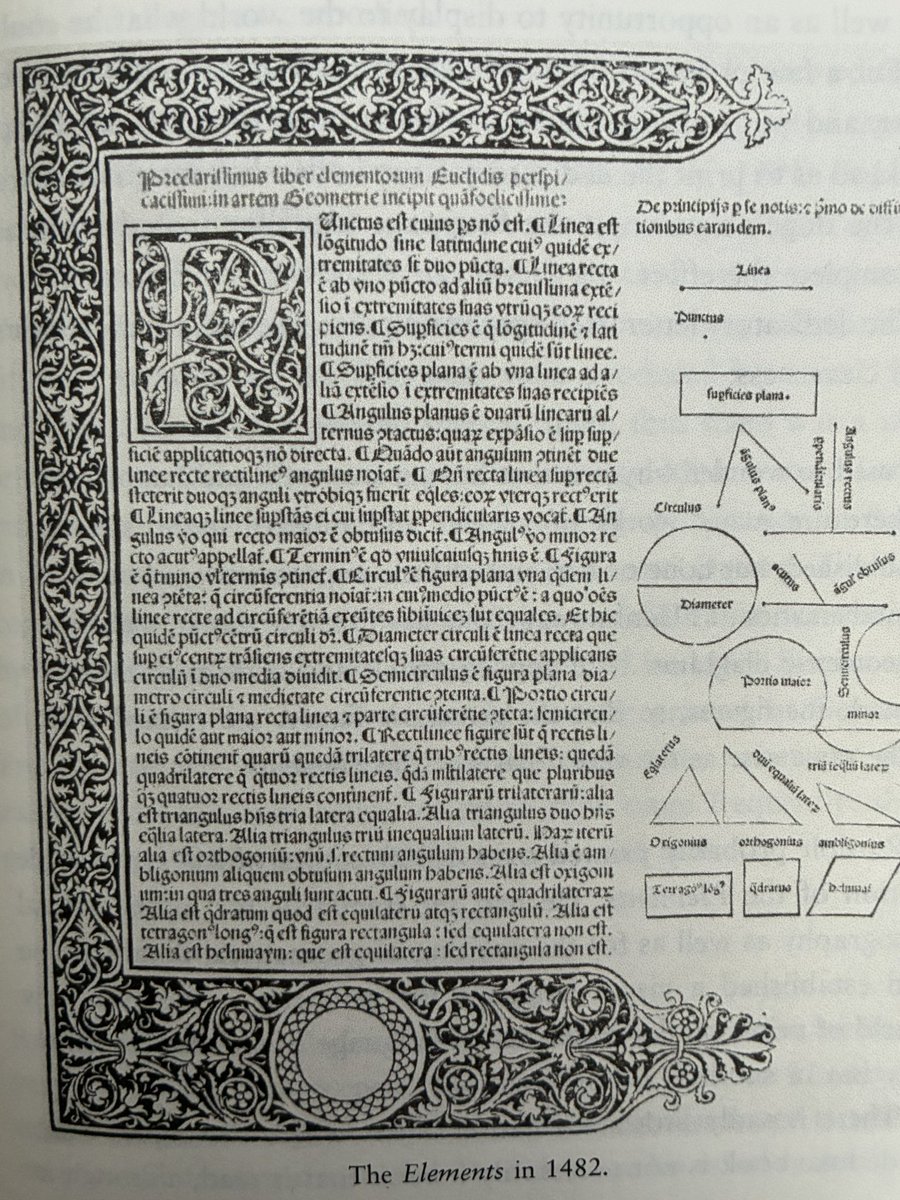 Preclarissimus liber elementorum Euclidis perspi/
cacissimi: in artem Geometrie incipit quãfoelicissime:
Punctus est cuius ps nõ est. ¶ Linea est
lõgitudo sine latitudine cuiꝰ quidẽ ex/
tremitates st duo pũcta. ¶ Linea recta
ẽ ab vno pũcto ad aliũ breuissima extẽ/
sio ĩ extremitates suas vtrũqꝫ eoꝝ reci
piens. ¶ Supficies ẽ q̃ lõgitudinẽ ⁊ lati
tudinẽ tm̃ hꝫ: cuiꝰ termi quidẽ sũt linee.
¶ Supficies plana ẽ ab vna linea ad a/
liã extẽsio ĩ extremitates suas recipiẽs
¶ Angulus planus ẽ duarũ linearũ al/
ternus ꝯtactus: quaꝝ expãsio ẽ sup sup/
ficiẽ applicatioqꝫ nõ directa. ¶ Quãdo aũt angulum ꝯtinẽt due
linee recte rectilineꝰ angulus noiat̃. ¶ Qñ recta linea sup rectã
steterit duoqꝫ anguli vtrobiqꝫ fuerit eq̃les: eoꝝ vterqꝫ rectꝰ erit
¶ Lineaqꝫ linee supstãs ei cui supstat ppendicularis vocat̃. ¶ An
gulus vo qui recto maior ẽ obtusus dicit̃. ¶ Angulꝰ vo minor re
cto acutꝰ appellat̃. ¶ Terminꝰ ẽ qd̃ vniuscuiusqꝫ finis ẽ. ¶ Figura
ẽ q̃ tmino vl̃ termis ꝯtinet̃. ¶ Circulꝰ ẽ figura plana vna qdem li/
nea ꝯtẽta: q̃ circũferentia noiat̃: in cuiꝰ medio pũctꝰ ẽ: a quo oẽs
linee recte ad circũferẽtiã exeũtes sibiiuicẽ sut equales. Et hic
quidẽ pũctꝰ cẽtrũ circuli dr̃. ¶ Diameter circuli ẽ linea recta que
sup eiꝰ centꝝ trãsiens extremitatesqꝫ suas circũferẽtie applicans
circulũ ĩ duo media diuidit. ¶ Semicirculus ẽ figura plana dia/
metro circuli ⁊ medietate circũferentie ꝯtenta. ¶ Portio circu/
li ẽ figura plana recta linea ⁊ parte circũferẽtie ꝯtẽta: semicircu/
lo quidẽ aut maior aut minor. ¶ Rectilinee figure sũt q̃ rectis li/
neis cõtinent̃ quarũ quedã trilatere q̃ tribꝰ rectis lineis: quedã
quadrilatere q̃ q̃tuor rectis lineis. qdã mltilatere que pluribus
qꝫ quatuor rectis lineis continent̃. ¶ Figurarũ trilaterarũ: alia
est triangulus hñs tria latera equalia. Alia triangulus duo hñs
eq̃lia latera. Alia triangulus triũ inequalium laterũ. Haꝝ iterũ
alia est orthogoniũ: vnũ .s. rectum angulum habens. Alia ẽ am
bligonium aliquem obtusum angulum habens. Alia est oxigoni
um: in qua tres anguli sunt acuti. ¶ Figurarũ autẽ quadrilateraꝝ
Alia est q̃dratum quod est equilaterũ atqꝫ rectangulũ. Alia est
tetragonꝰ longꝰ: q̃ est figura rectangula: sed equilatera non est.
Alia est helmuaym: que est equilatera: sed rectangula non est.
De principijs p se notis: ⁊ pmo de diffini
tionibus earandem.
Linea
Punctus
supficies plana.
ãgulus planꝰ
ppendicularis
Angulus rectus
Circulus
Diameter
acutus
ãgulꝰ obtusus
Portio maior
Semicirculus
minor
Eqlaterus
duũ equaliũ laterꝝ
triũ ineqliũ laterꝝ
Oxigonius
orthogonius
ambligonius
Tetragoꝰ lõgꝰ
q̃dratus
helmuai
The Elements in 1482.